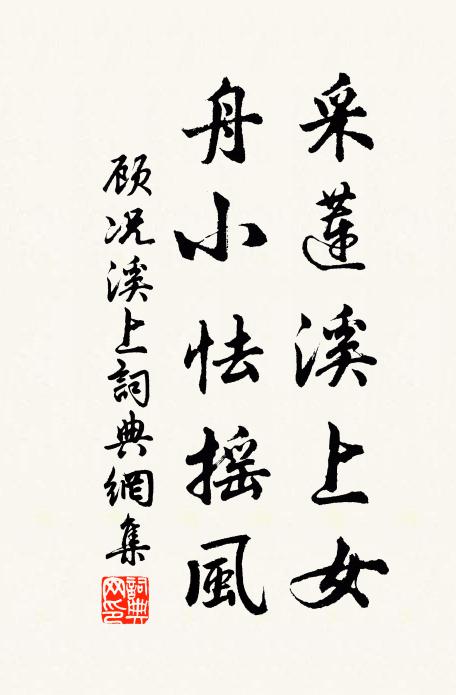 采蓮溪上女
舟小怯摇風
顾况溪上詞典網集
詞典網印